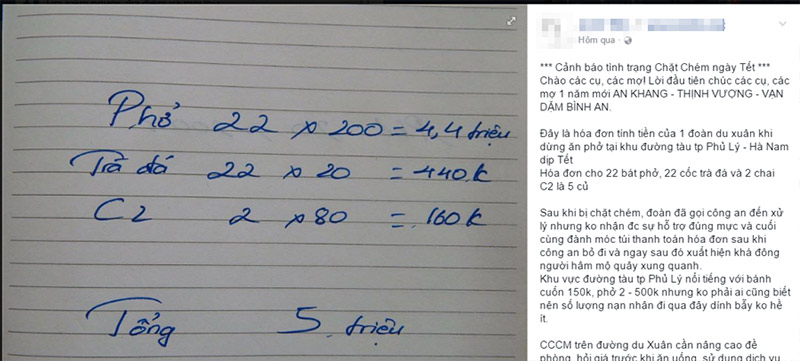 Phở 22 x 200 = 4,4 triệu
Trà đá 22 x 20 = 440.k
C2 2 x 80 = 160k
Tổng 5 triệu
Hôm qua
*** Cảnh báo tình trạng Chặt Chém ngày Tết ***
Chào các cụ, các mợ! Lời đầu tiên chúc các cụ, các
mợ 1 năm mới AN KHANG - THỊNH VƯỢNG - VẠN
DẶM BÌNH AN.
Đây là hóa đơn tính tiền của 1 đoàn du xuân khi
dùng ăn phở tại khu đường tàu tp Phủ Lý - Hà Nam
dịp Tết
Hóa đơn cho 22 bát phở, 22 cốc trà đá và 2 chai
C2 là 5 củ
Sau khi bị chặt chém, đoàn đã gọi công an đến xử
lý nhưng ko nhận đc sự hỗ trợ đúng mực và cuối
cùng đành móc túi thanh toán hóa đơn sau khi
công an bỏ đi và ngay sau đó xuất hiện khá đông
người hâm mộ quây xung quanh.
Khu vực đường tàu tp Phủ Lý nổi tiếng với bánh
cuốn 150k, phở 2 - 500k nhưng ko phải ai cũng biết
nên số lượng nạn nhân đi qua đây dính bẫy ko hề
ít.
CCCM trên đường du Xuân cần nâng cao đề
phòng, hỏi giá trước khi ăn uống, sử dụng dịch vụ